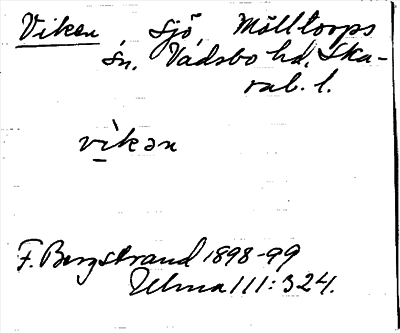 Viken, sjö, Mölltorps
sn. Vadsbo hd. Ska-
rab. l.
vìkən
F. Bergstrand 1898-99
Ulma 111:324.